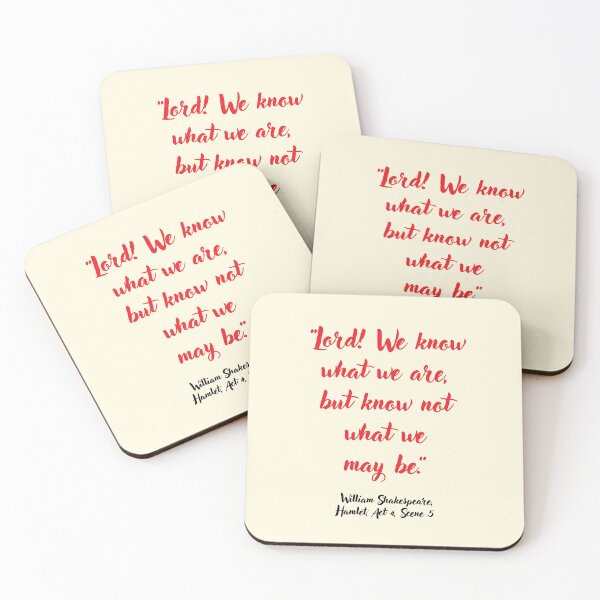 "Lord! We know
what we are,
but know not
"Lord! We know
what we are,
but know not
what we
may be."
"Lord! We know
what we are,
but know not
what we
may be."
William Shakespe
Hamlet, Act 4,
"Lord! We know
what we are,
but know not
what we
may be."
William Shakespeare,
Hamlet, Act 4, Scene 5